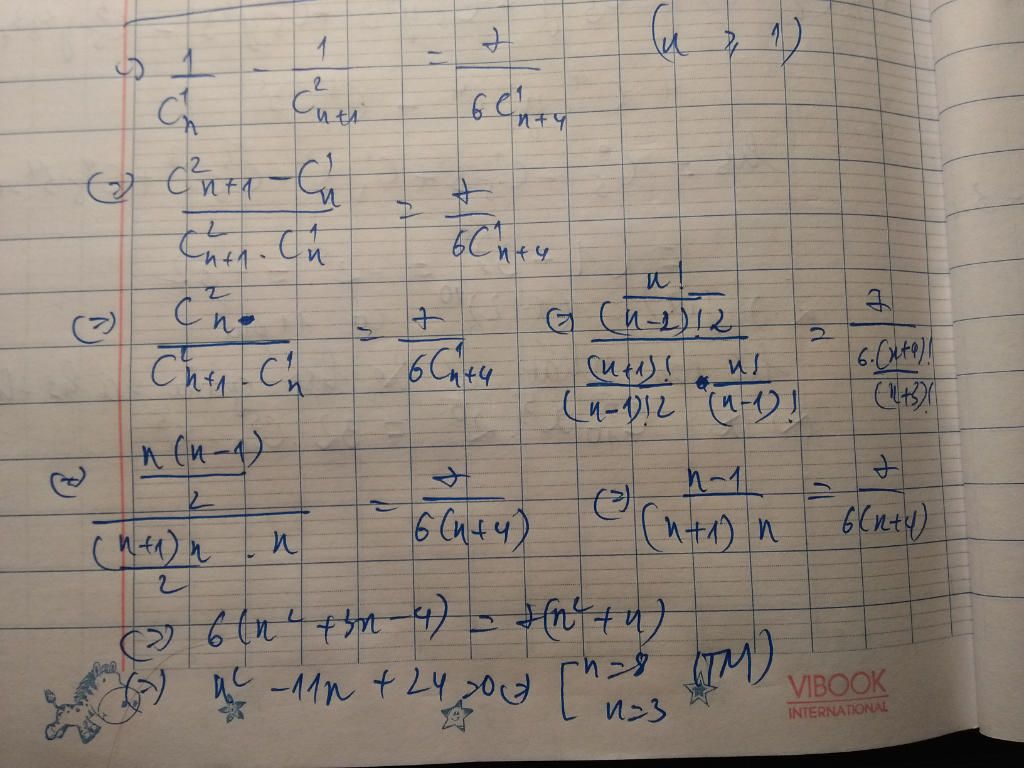 => 1/C_n^1 - 1/C_{n+1}^2 = 7/(6C_{n+4}^1) (n ≥ 1)
(=) (C_{n+1}^2 - C_n^1)/(C_{n+1}^2 . C_n^1) = 7/(6C_{n+4}^1)
(=) C_n^2/(C_{n+1}^2 . C_n^1) = 7/(6C_{n+4}^1) (=) (n!/((n-2)!2))/((n+1)!/((n-1)!2) . n!/(n-1)!) = 7/(6.(n+4)!/(n+3)!)
(=) (n(n-1)/2)/((n+1)n/2 . n) = 7/(6(n+4)) (=) (n-1)/((n+1)n) = 7/(6(n+4))
(=) 6(n² + 3n - 4) = 7(n² + n)
(=) n² - 11n + 24 = 0 (=) [n=8 n=3 (TM)
VIBOOK
INTERNATIONAL